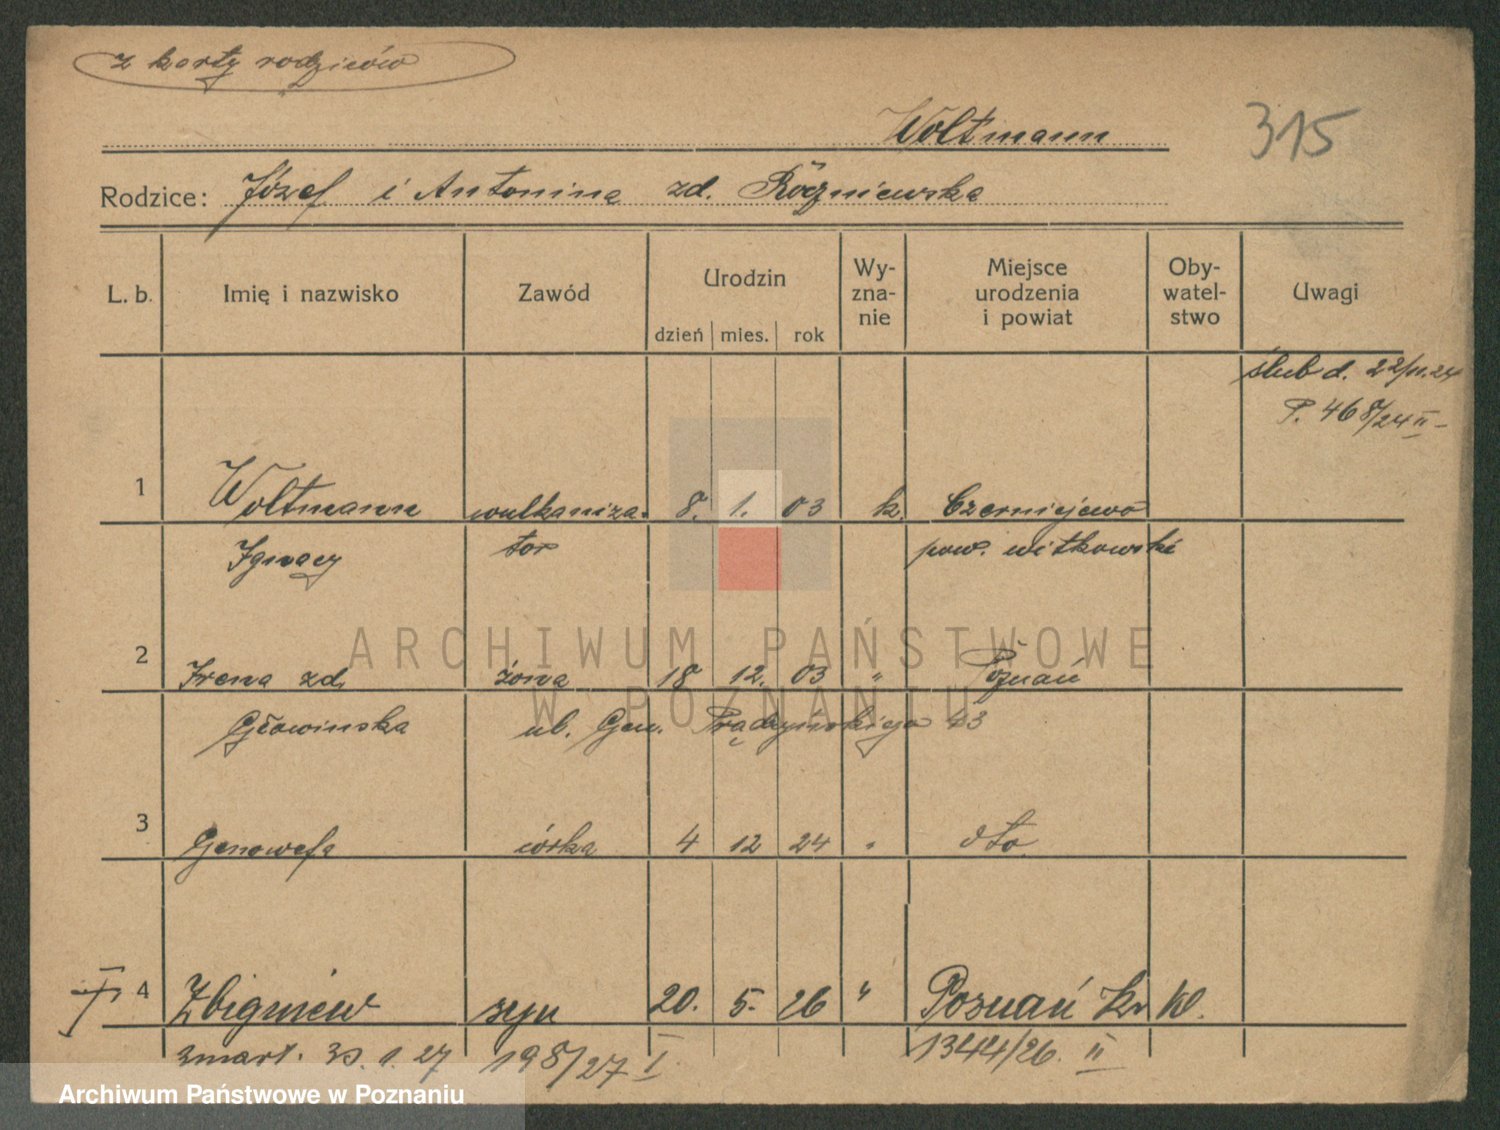 z karty rodziców
Woltmann 315
Rodzice: Józef i Antonina zd. Roczniewska
L. b. Imię i nazwisko Zawód Urodzin Wy-zna-nie Miejsce urodzenia i powiat Oby-watel-stwo Uwagi
dzień mies. rok
ślub d. 22/11.24
P. 468/24 II
1 Woltmann wulkaniza- 8. 1. 03 k. Czerniejewo
Ignacy tor pow. witkowski
2 Irena zd. żona 18 12. 03 " Poznań
Głowinska ul. Gen. Prądzyńskiego 43
3 Genowefa córka 4 12 24 " dto
4 Zbigniew syn 20. 5. 26 " Poznań
zmarł. 30. 1. 27 198/27 I 1344/26. II
ARCHIWUM PAŃSTWOWE
W POZNANIU
Archiwum Państwowe w Poznaniu